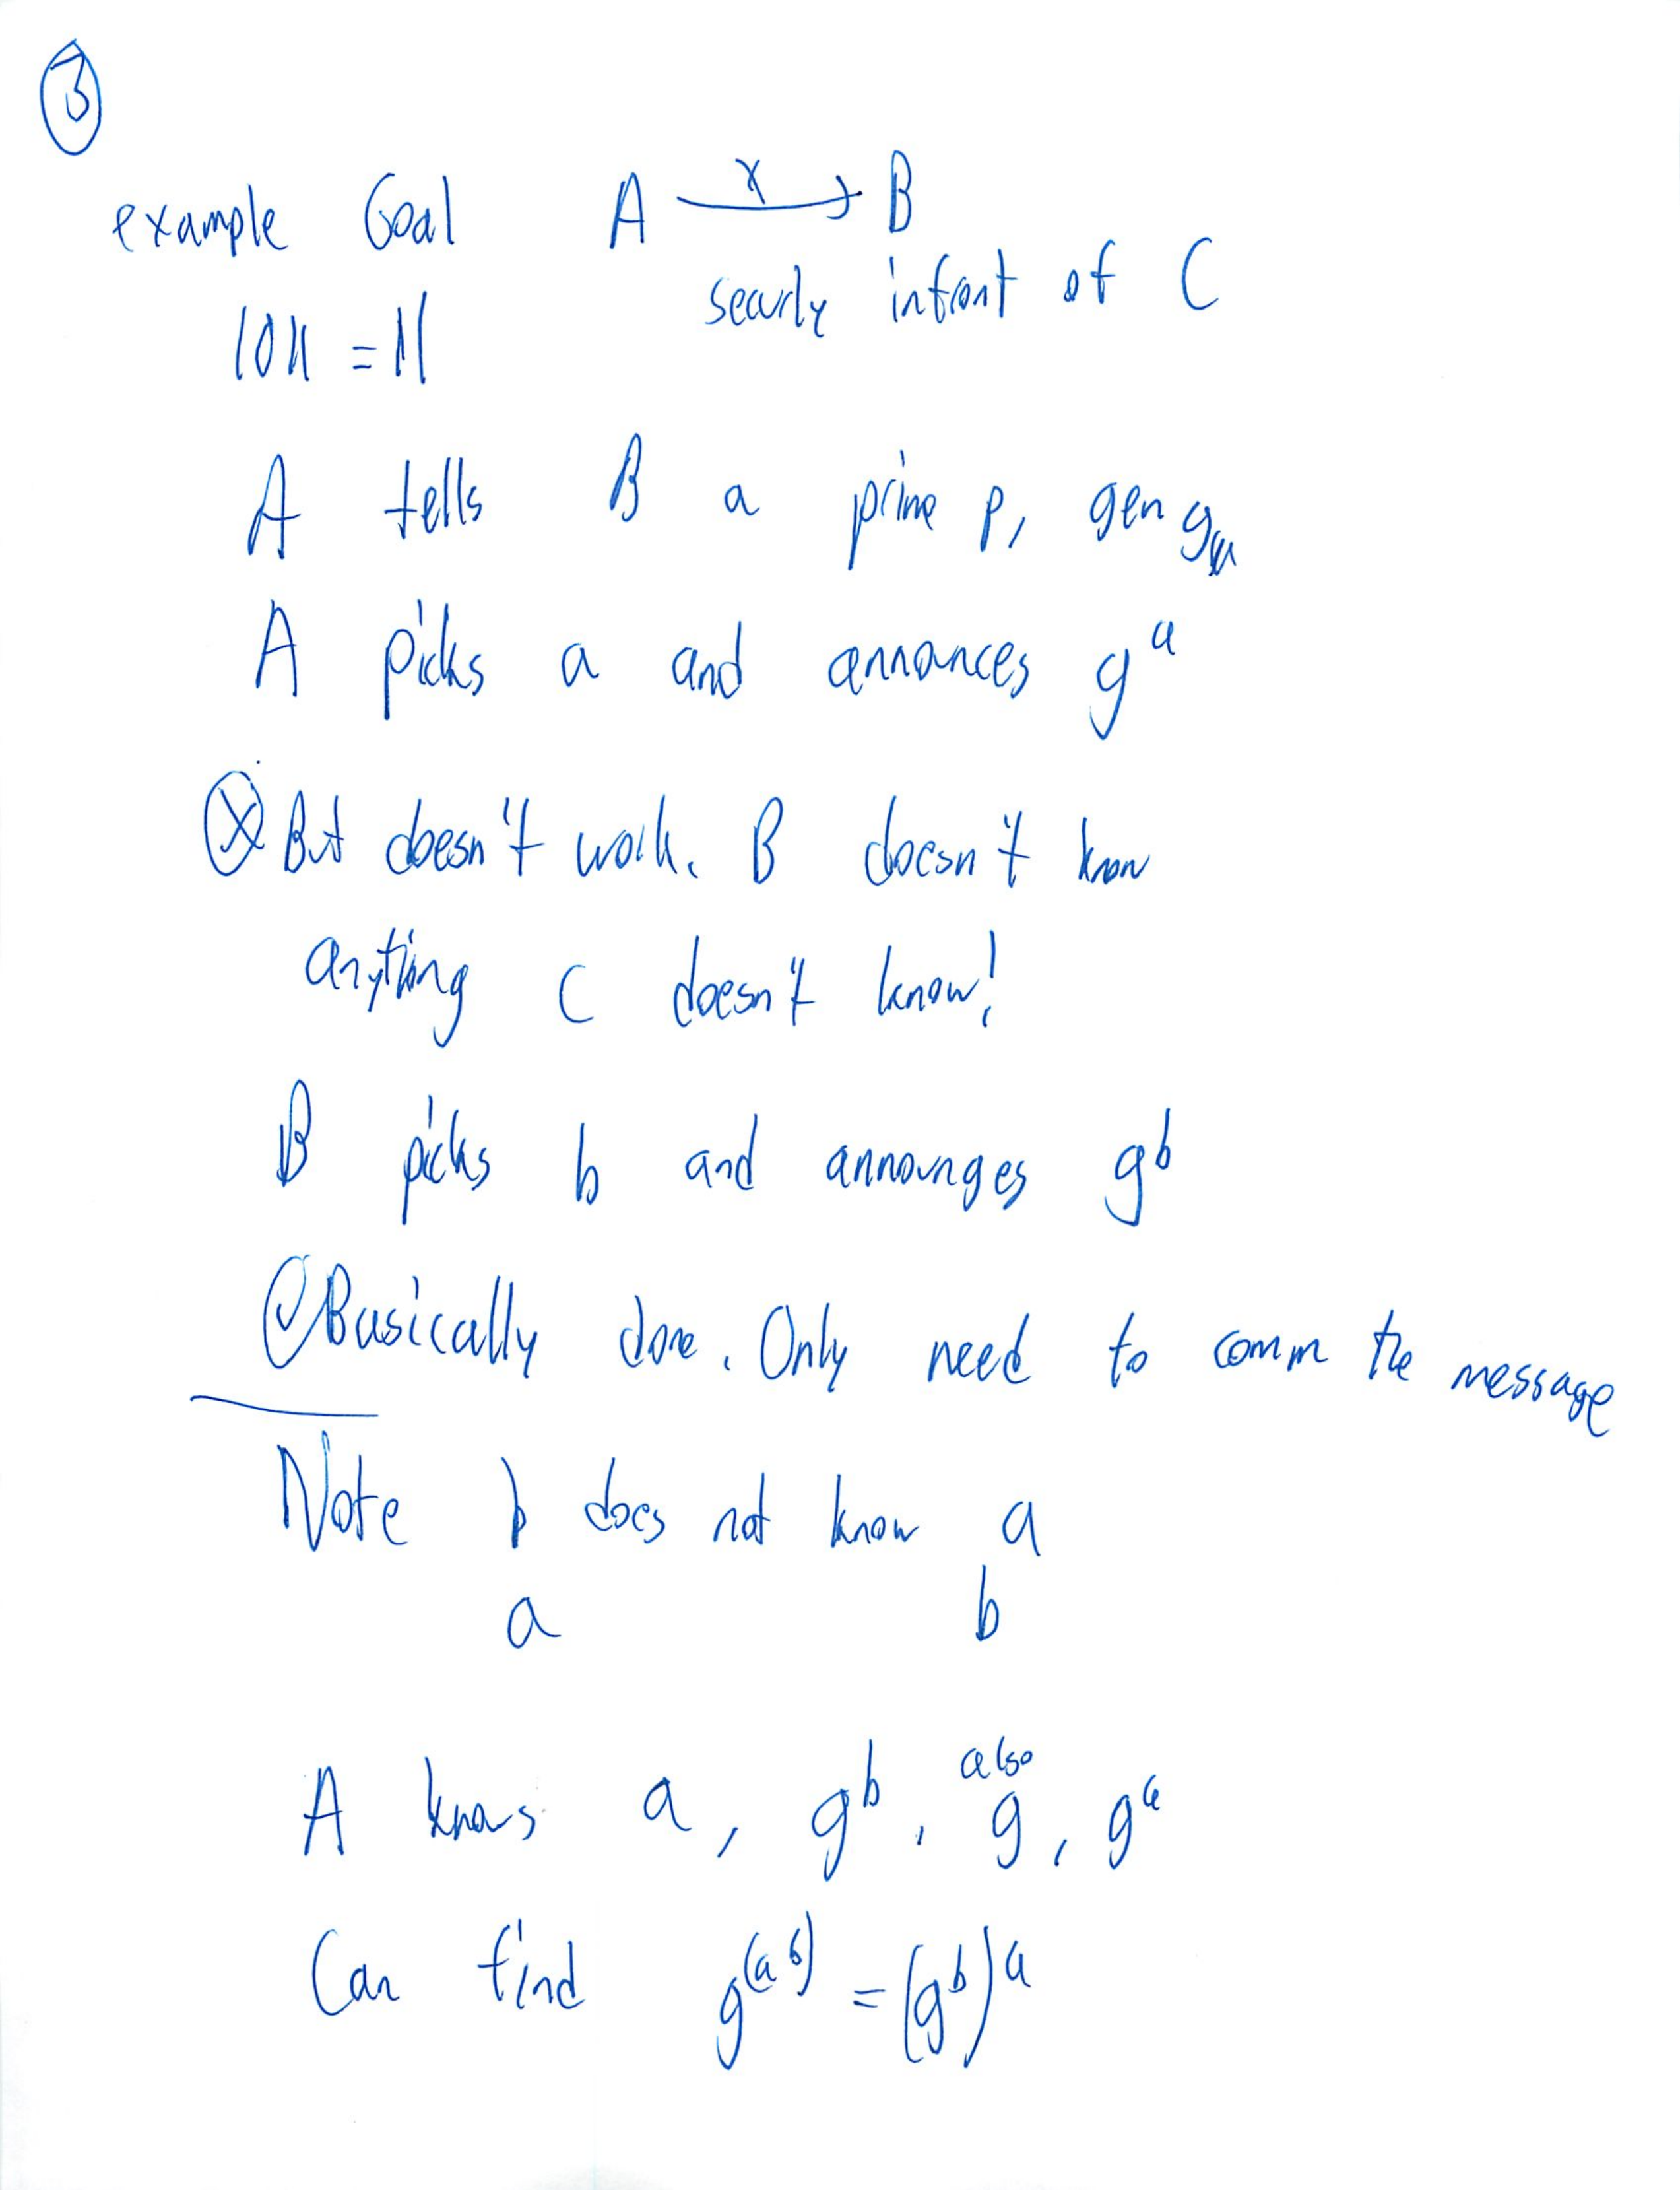 3
example Goal A x→ B
securly infront of C
1011 = 11
A tells B a prime p, gen g
A picks a and annonces g^a
ⓧ But doesn't work. B doesn't know
anything C doesn't know!
B picks b and announges g^b
✓ Basically done. Only need to comm the message
Note b does not know a
a b
A knows a, g^b, also g, g^a
Can find g^(ab) = (g^b)^a